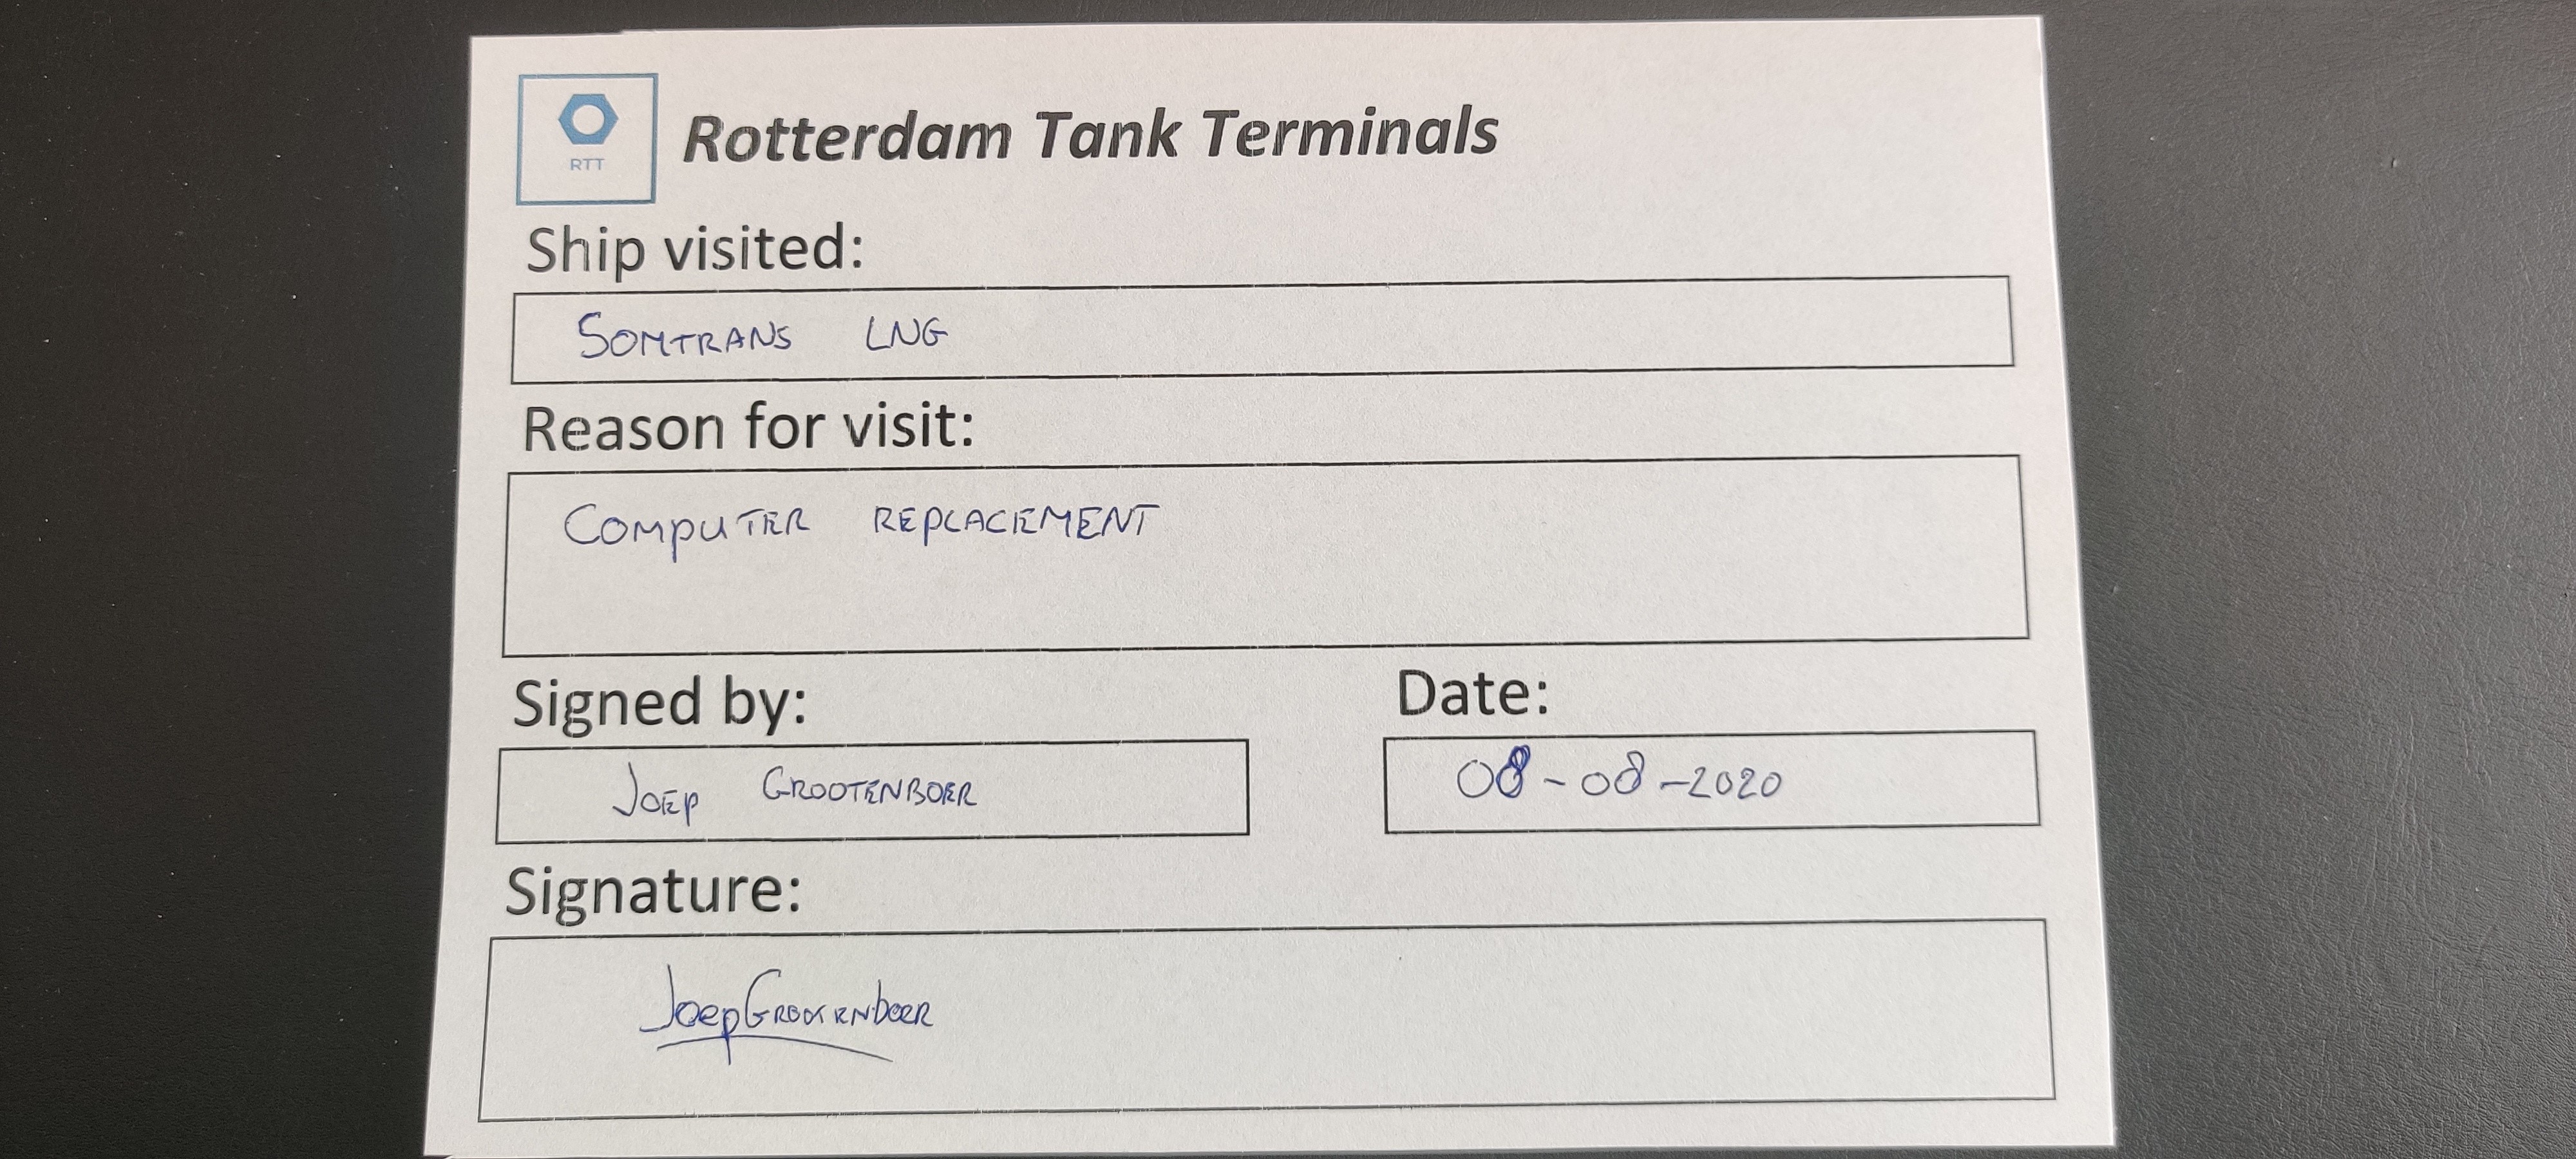 RTT
Rotterdam Tank Terminals
Ship visited:
SOMTRANS LNG
Reason for visit:
COMPUTER REPLACEMENT
Signed by:
JOEP GROOTENBOER
Date:
08-08-2020
Signature:
JoepGROOTENboER